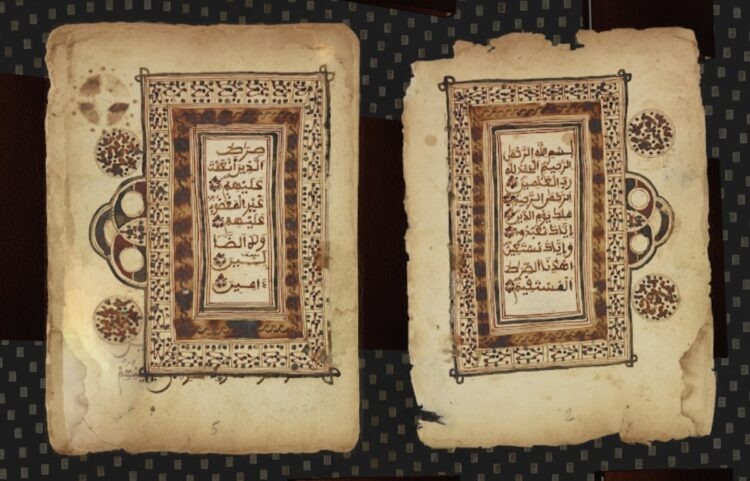 بسم الله الرحمن
الرحيم الحمد لله
رب العلمين
الرحمن الرحيم
ملك يوم الدين
إياك نعبد
وإياك نستعين
اهدنا الصرط
المستقيم
2
صرط
الذين أنعمت
عليهم
غير المغضوب
عليهم
ولا الضا
لين
ءامين
5